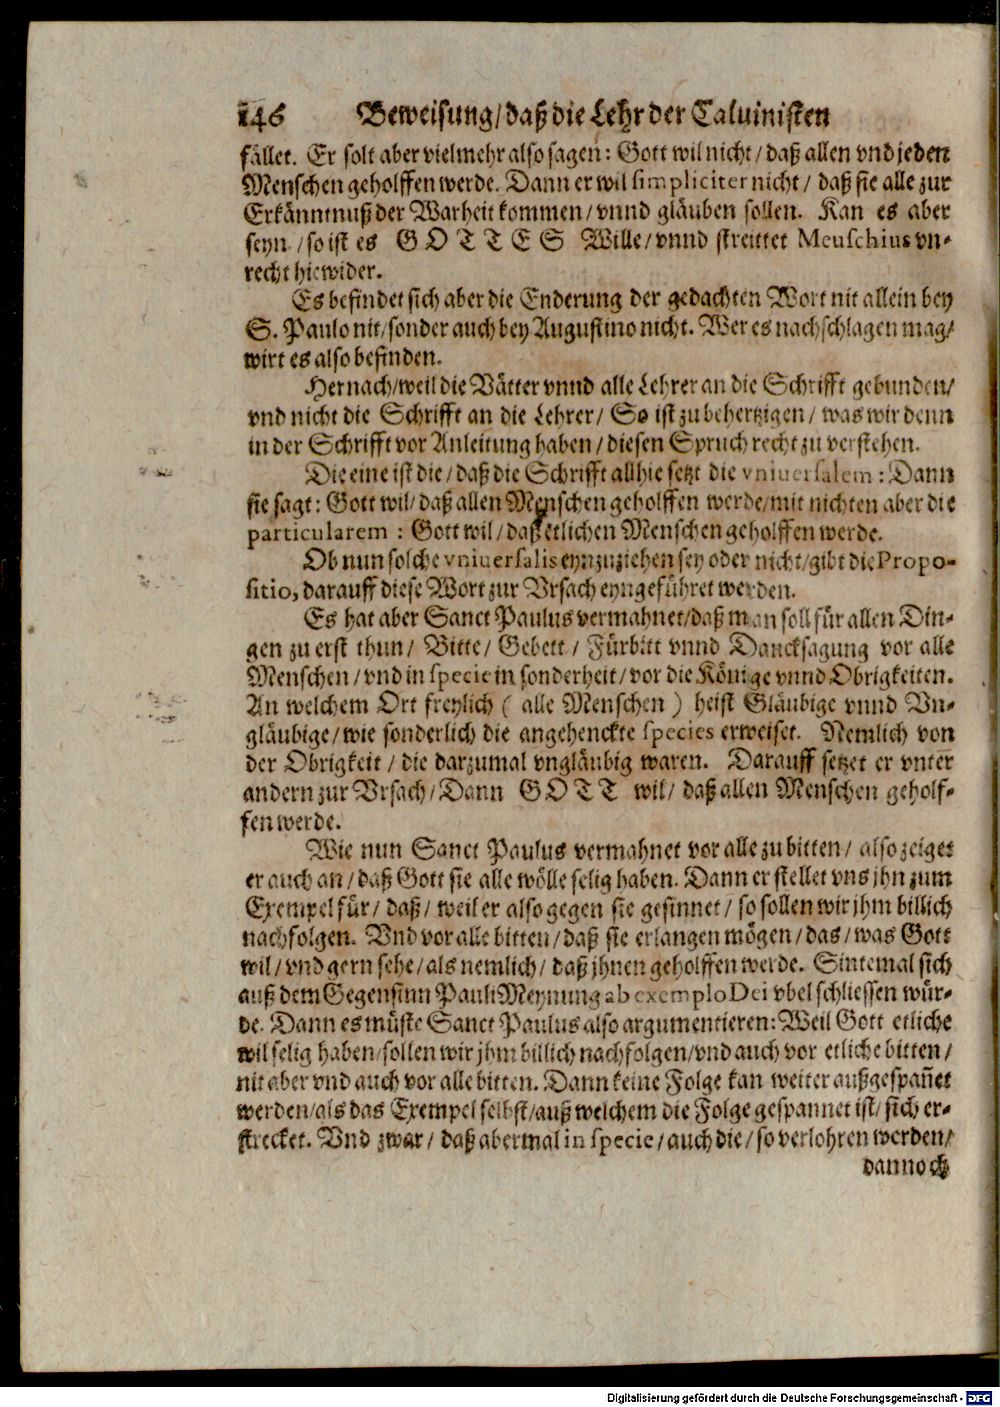 146 Beweisung/daß die Lehr der Caluinisten
fället. Er solt aber vielmehr also sagen: Gott wil nicht/daß allen vnd jeden
Menschen geholffen werde. Dann er wil simpliciter nicht/ daß sie alle zur
Erkänntnuß der Warheit kommen/vnnd gläuben sollen. Kan es aber
seyn /so ist es GOTTES Wille/vnnd streittet Meuschius vn-
recht hiewider.
Es befindet sich aber die Enderung der gedachten Wort nit allein bey
S. Paulo nit/sonder auch bey Augustino nicht. Wer es nachschlagen mag/
wirt es also befinden.
Hernach/weil die Vätter vnnd alle Lehrer an die Schrifft gebunden/
vnd nicht die Schrifft an die Lehrer/ So ist zu behertzigen/ was wir denn
in der Schrifft vor Anleitung haben/diesen Spruch recht zu verstehen.
Die eine ist die/daß die Schrifft allhie setzt die vniuersalem: Dann
sie sagt: Gott wil/daß allen Menschen geholffen werde/mit nichten aber die
particularem: Gott wil/daß etlichen Menschen geholffen werde.
Ob nun solche vniuersalis eynzuziehen sey oder nicht/gibt die Propo-
sitio, darauff diese Wort zur Vrsach eyngeführet werden.
Es hat aber Sanct Paulus vermahnet/daß man soll für allen Din-
gen zu erst thun/ Bitte/ Gebett/ Fürbitt vnnd Dancksagung vor alle
Menschen/vnd in specie in sonderheit/vor die Könige vnnd Obrigkeiten.
An welchem Ort freylich ( alle Menschen ) heist Gläubige vnnd Vn-
gläubige/wie sonderlich die angehenckte species erweiset. Nemlich von
der Obrigkeit/ die darzumal vngläubig waren. Darauff setzet er vnter̄
andern zur Vrsach/Dann GOTT wil/ daß allen Menschen geholf-
fen werde.
Wie nun Sanct Paulus vermahnet vor alle zu bitten/ also zeiget
er auch an/daß Gott sie alle wölle selig haben. Dann er stellet vns jhn zum
Exempel für/ daß/ weil er also gegen sie gesinnet/ so sollen wir jhm billich
nachfolgen. Vnd vor alle bitten/daß sie erlangen mögen/das/was Gott
wil/vnd gern sehe/als nemlich/ daß jhnen geholffen werde. Sintemal sich
auß dem Gegensinn Pauli Meynung ab exemplo Dei vbel schliessen wür-
de. Dann es müste Sanct Paulus also argumentieren: Weil Gott etliche
wil selig haben/sollen wir jhm billich nachfolgen/vnd auch vor etliche bitten/
nit aber vnd auch vor alle bitten. Dann keine Folge kan weiter außgespañet
werden/als das Exempel selbst/auß welchem die Folge gespannet ist/ sich er-
strecket. Vnd zwar/ daß abermal in specie/auch die/so verlohren werden/
dannoch
Digitalisierung gefördert durch die Deutsche Forschungsgemeinschaft - DFG